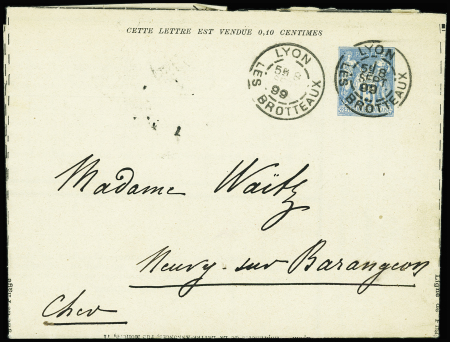 CETTE LETTRE EST VENDUE 0,10 CENTIMES
LYON
5E 8
99
LES BROTTEAUX
LYON
5E 8
SEPT
99
LES BROTTEAUX
Madame Waïtz
Neuvy-sur Barangeon
Cher